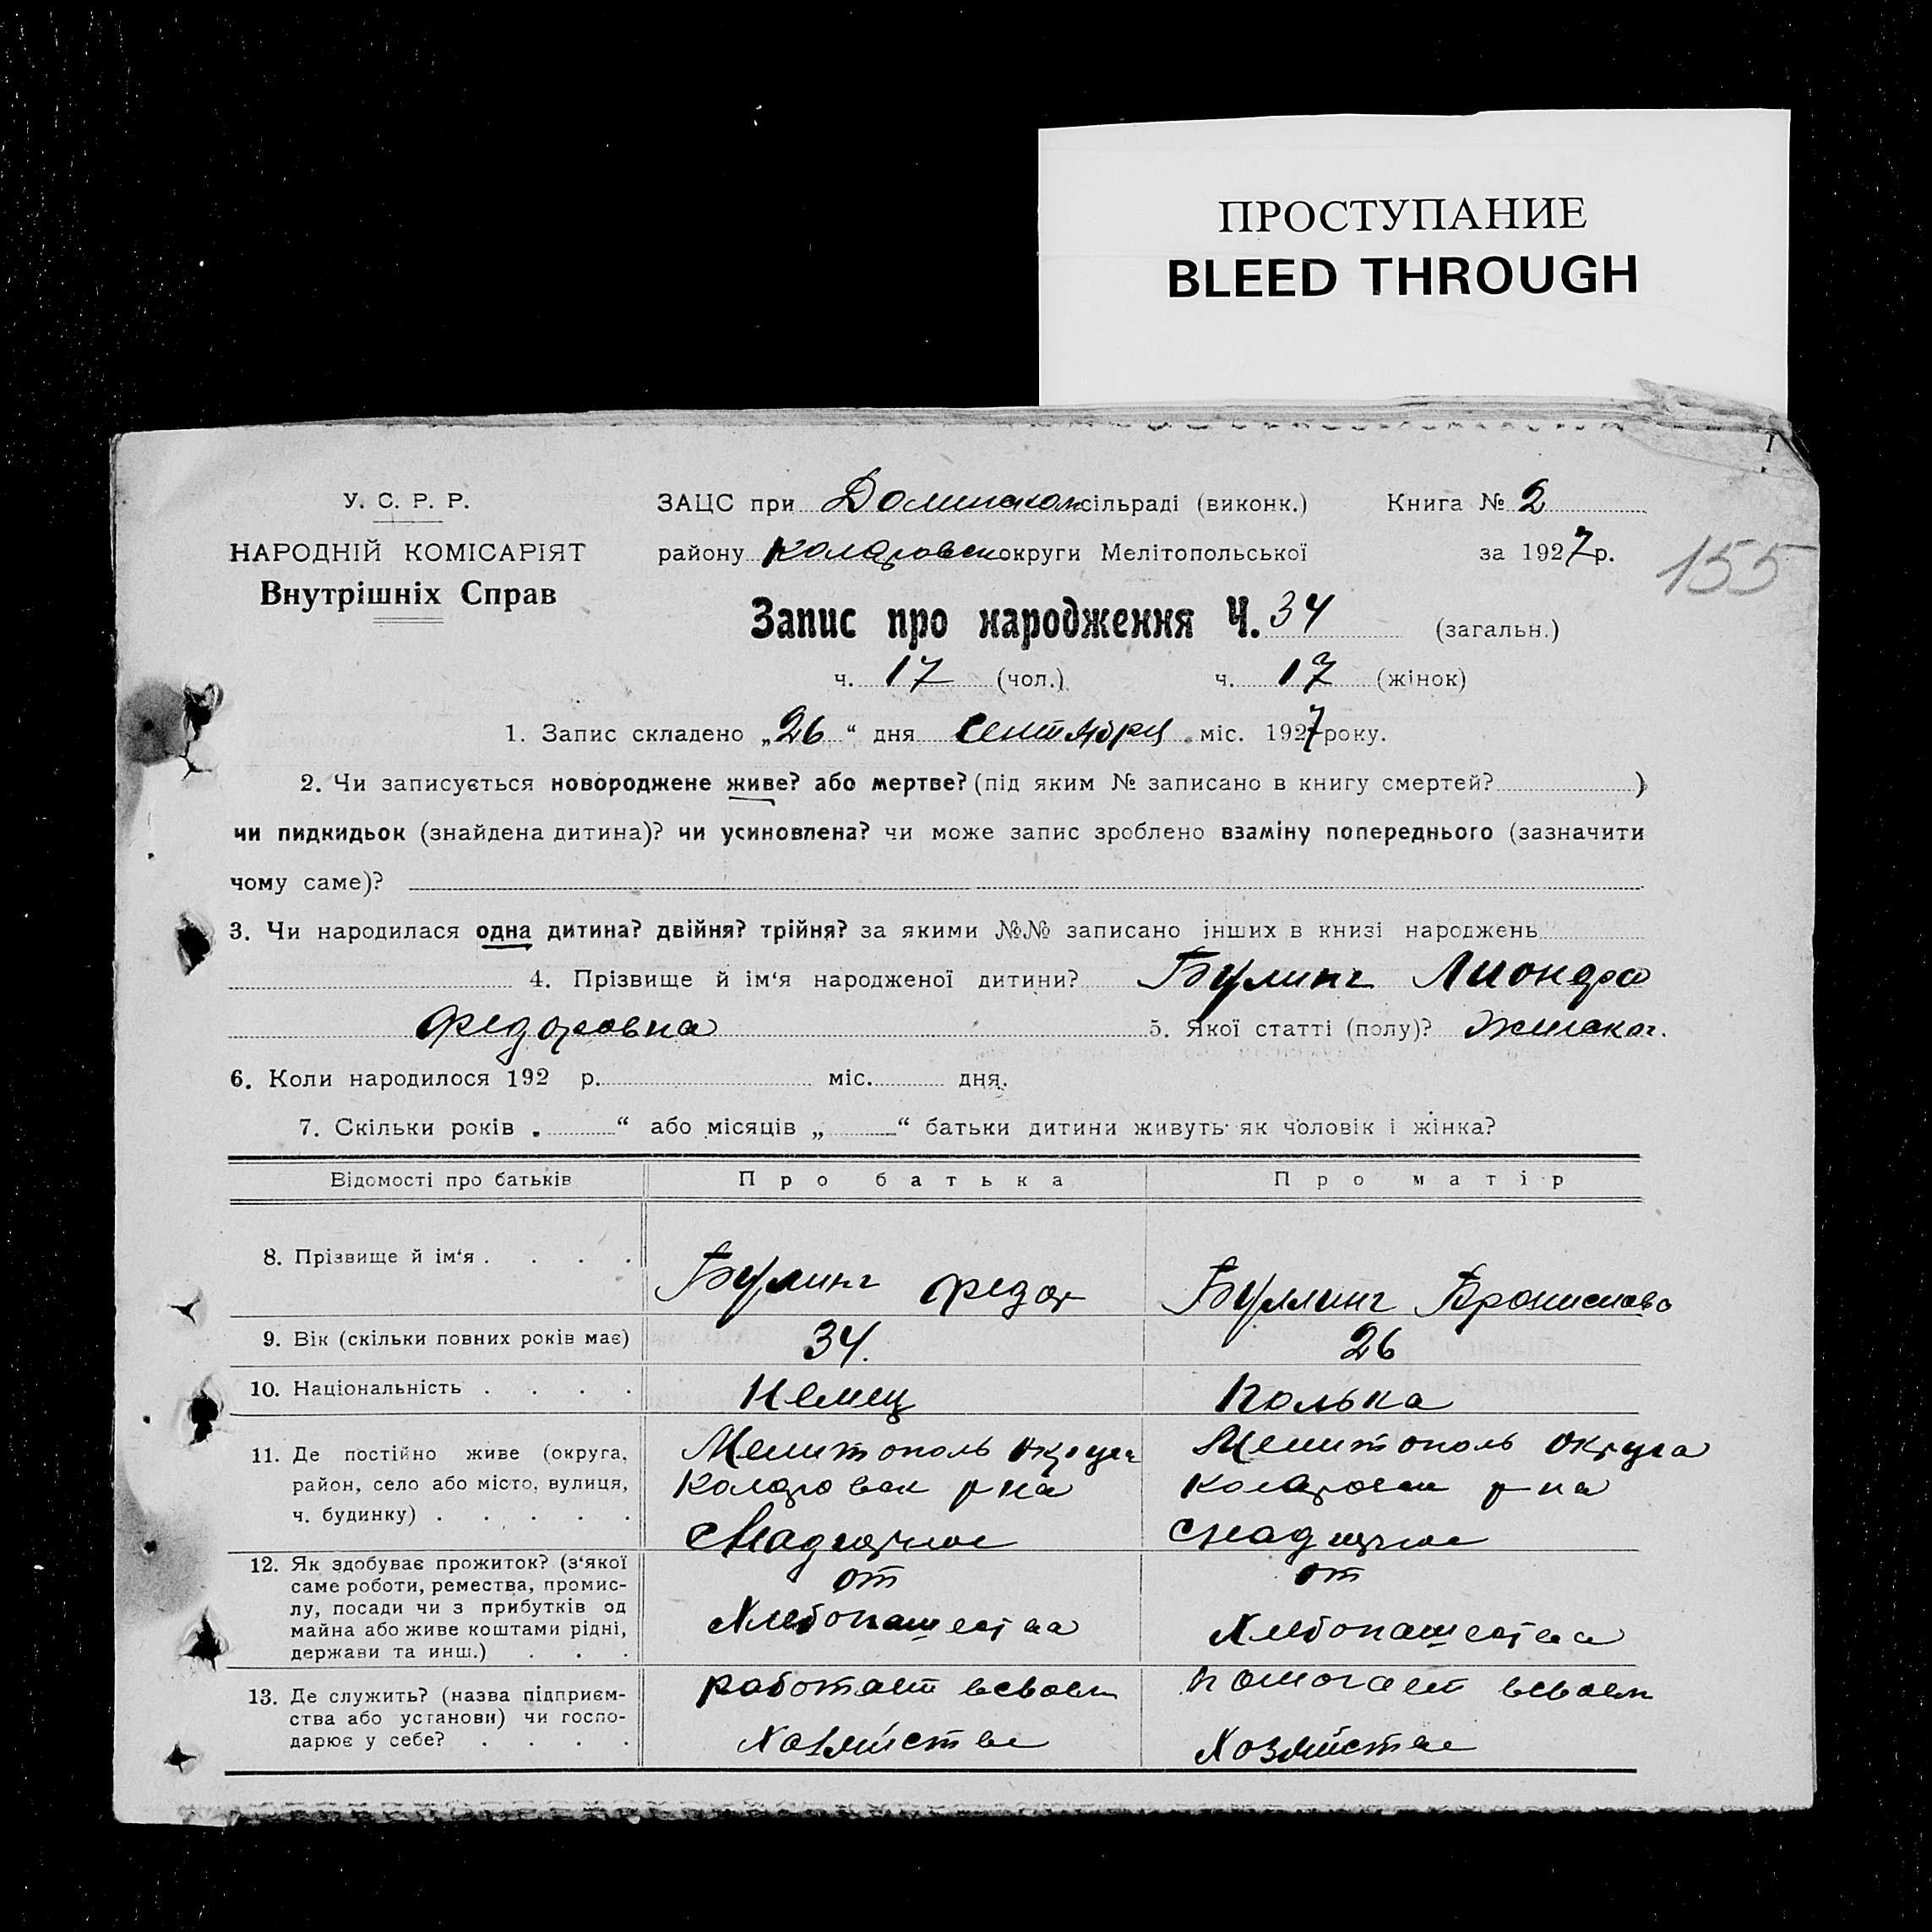 ПРОСТУПАНИЕ
BLEED THROUGH
У. С. Р. Р.
НАРОДНІЙ КОМІСАРІЯТ
Внутрішніх Справ
ЗАЦС при сільраді (виконк.) Книга № 2
району округи Мелітопольської за 1927 р.
155
Запис про народження Ч. 34 (загальн.)
ч. 17 (чол.) ч. 17 (жінок)
1. Запис складено „26“ дня Сентября міс. 1927 року.
2. Чи записується новороджене живе? або мертве? (під яким № записано в книгу смертей? )
чи пидкидьок (знайдена дитина)? чи усиновлена? чи може запис зроблено взаміну попереднього (зазначити
чому саме)?
3. Чи народилася одна дитина? двійня? трійня? за якими №№ записано інших в книзі народжень
4. Прізвище й ім‘я народженої дитини? Булинг Лиондра
Федоровна 5. Якої статті (полу)? Женског.
6. Коли народилося 192 р. міс. дня.
7. Скільки років „ “ або місяців „ “ батьки дитини живуть як чоловік і жінка?
Відомості про батьків Про батька Про матір
8. Прізвище й ім‘я . . . . Булинг Федор Буллинг Бронислава
9. Вік (скільки повних років має) 34. 26
10. Національність . . . . Немец Полька
11. Де постійно живе (округа, Мелитополь округа Мелитополь округа
район, село або місто, вулиця, р на р на
ч. будинку) . . . . .
12. Як здобуває прожиток? (з‘якої от от
саме роботи, ремества, промис-
лу, посади чи з прибутків од Хлебопашества Хлебопашества
майна або живе коштами рідні,
держави та инш.) . . .
13. Де служить? (назва підприєм- работает всвоем помогает всвоем
ства або установи) чи госпо-
дарює у себе? . . . . Хозяйстве Хозяйстве